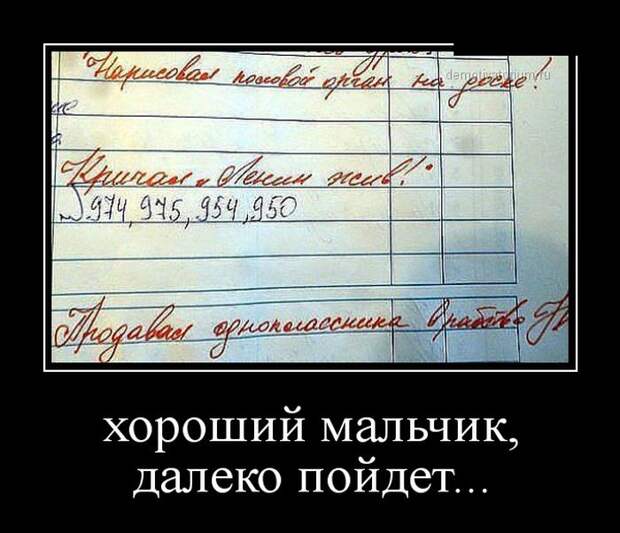 Нарисовал половой орган на доске!
demotivatorium.ru
ие
Кричал „Ленин жив!"
974, 975, 954, 950
Продавал одноклассника в рабство
хороший мальчик,
далеко пойдет...